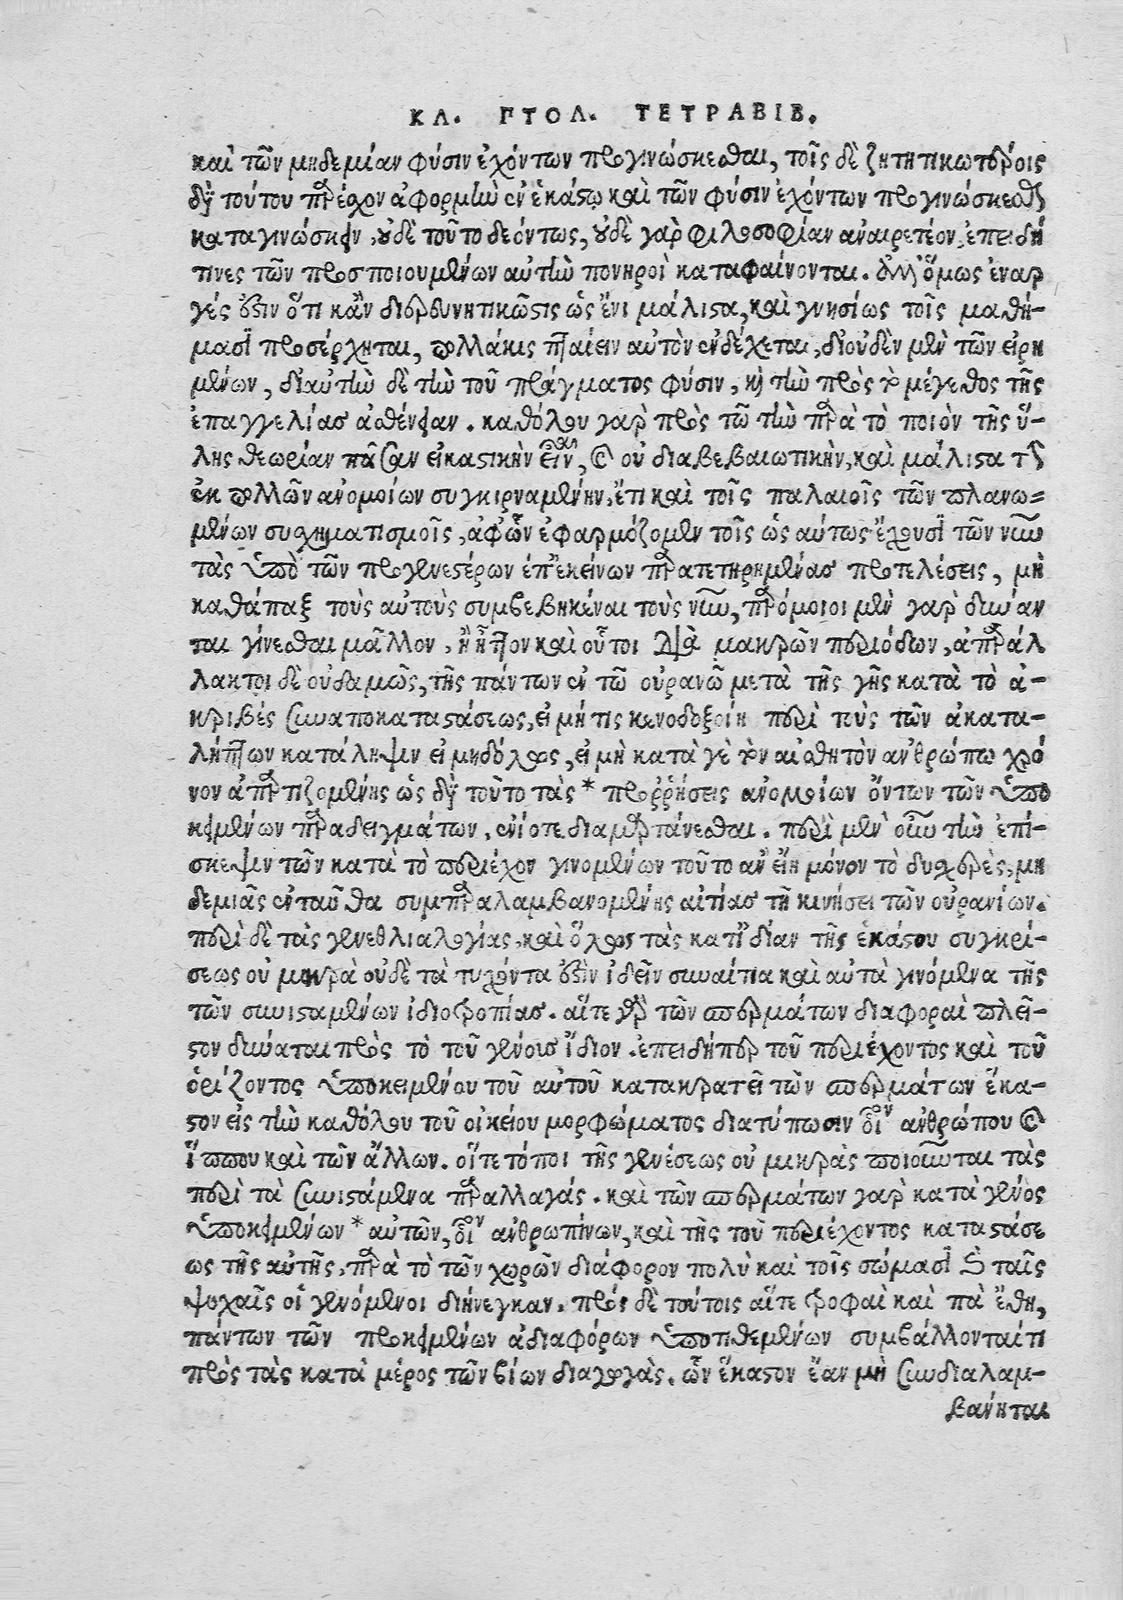 ΚΛ. ΠΤΟΛ. ΤΕΤΡΑΒΙΒ.
καὶ τῶν μηδεμίαν φύσιν ἐχόντων προγινώσκεσθαι, τοῖς δὲ ζητητικωτέροις
διὰ τούτου παρέχον ἀφορμὴν ἐν ἑκάστῳ καὶ τῶν φύσιν ἐχόντων προγινώσκεσθαι
καταγινώσκειν, οὐδὲ τοῦτο δεόντως, οὐδὲ γὰρ φιλοσοφίαν ἀναιρετέον, ἐπειδή
τινες τῶν προσποιουμένων αὐτὴν πονηροὶ καταφαίνονται. ἀλλ' ὅμως ἐναρ
γές ἐστιν ὅτι κἂν διερευνητικῶς τις ὡς ἔνι μάλιστα, καὶ γνησίως τοῖς μαθή-
μασι προσέρχηται, πολλάκις πταίειν αὐτὸν ἐνδέχεται, δι' οὐδὲν μὲν τῶν εἰρη
μένων, δι' αὐτὴν δὲ τὴν τοῦ πράγματος φύσιν, καὶ τὴν πρὸς τὸ μέγεθος τῆς
ἐπαγγελίας ἀσθένειαν. καθόλου γὰρ πρὸς τῷ τὴν παρὰ τὸ ποιὸν τῆς ὕ-
λης θεωρίαν πᾶσαν εἰκαστικὴν εἶναι, καὶ οὐ διαβεβαιωτικὴν, καὶ μάλιστα τὴν
ἐκ πολλῶν ἀνομοίων συγκιρναμένην, ἔτι καὶ τοῖς παλαιοῖς τῶν πλανω=
μένων συσχηματισμοῖς, ἀφ' ὧν ἐφαρμόζομεν τοῖς ὡς αὕτως ἔχουσι τῶν νῦν
τὰς ὑπὸ τῶν προγενεστέρων ἐπ' ἐκείνων παρατετηρημένας προτελέσεις, μὴ
καθάπαξ τοὺς αὐτοὺς συμβεβηκέναι τοὺς νῦν, παρόμοιοι μὲν γὰρ δύναν
ται γίνεσθαι μᾶλλον, ἢ ἧττον καὶ οὗτοι διὰ μακρῶν περιόδων, ἀπαράλ
λακτοι δὲ οὐδαμῶς, τῆς πάντων ἐν τῷ οὐρανῷ μετὰ τῆς γῆς κατὰ τὸ ἀ-
κριβὲς συναποκαταστάσεως, εἰ μή τις κενοδοξοίη περὶ τοὺς τῶν ἀκατα-
λήπτων κατάληψιν εἰ μηδόλως, εἰ μὴ κατὰ γὲ τὸν αἰσθητὸν ἀνθρώπῳ χρό
νον ἀπαρτιζομένης ὡς διὰ τοῦτο τὰς * προῤῥήσεις ἀνομοίων ὄντων τῶν ὑπο
κειμένων παραδειγμάτων, ἐνίοτε διαμαρτάνεσθαι. περὶ μὲν οὖν τὴν ἐπί-
σκεψιν τῶν κατὰ τὸ περιέχον γινομένων τοῦτο ἂν εἴη μόνον τὸ δυσχερὲς, μη
δεμιᾶς ἐνταῦθα συμπαραλαμβανομένης αἰτίας τῇ κινήσει τῶν οὐρανίων.
περὶ δὲ τὰς γενεθλιαλογίας, καὶ ὅλως τὰς κατ' ἰδίαν τῆς ἑκάστου συγκρί-
σεως οὐ μικρὰ οὐδὲ τὰ τυχόντα ἐστὶν ἰδεῖν συναίτια καὶ αὐτὰ γινόμενα τῆς
τῶν συνισταμένων ἰδιοτροπίας. αἵτε γὰρ τῶν σπερμάτων διαφοραὶ πλεῖ-
στον δύναται πρὸς τὸ τοῦ γένους ἴδιον. ἐπειδήπερ τοῦ περιέχοντος καὶ τοῦ
ὁρίζοντος ὑποκειμένου τοῦ αὐτοῦ κατακρατεῖ τῶν σπερμάτων ἕκα-
στον εἰς τὴν καθόλου τοῦ οἰκείου μορφώματος διατύπωσιν οἷον ἀνθρώπου καὶ
ἵππου καὶ τῶν ἄλλων. οἵτε τόποι τῆς γενέσεως οὐ μικρὰς ποιοῦνται τὰς
περὶ τὰ συνιστάμενα παραλλαγάς. καὶ τῶν σπερμάτων γὰρ κατὰ γένος
ὑποκειμένων * αὐτῶν, οἷον ἀνθρωπίνων, καὶ τῆς τοῦ περιέχοντος καταστάσε
ως τῆς αὐτῆς, παρὰ τὸ τῶν χωρῶν διάφορον πολὺ καὶ τοῖς σώμασι καὶ ταῖς
ψυχαῖς οἱ γενόμενοι διήνεγκαν. πρὸς δὲ τούτοις αἵτε τροφαὶ καὶ πὰ ἔθη,
πάντων τῶν προκειμένων ἀδιαφόρων ὑποτιθεμένων συμβάλλονταίτι
πρὸς τὰς κατὰ μέρος τῶν βίων διαγωγὰς. ὧν ἕκαστον ἔαν μὴ συνδιαλαμ-
βανήται